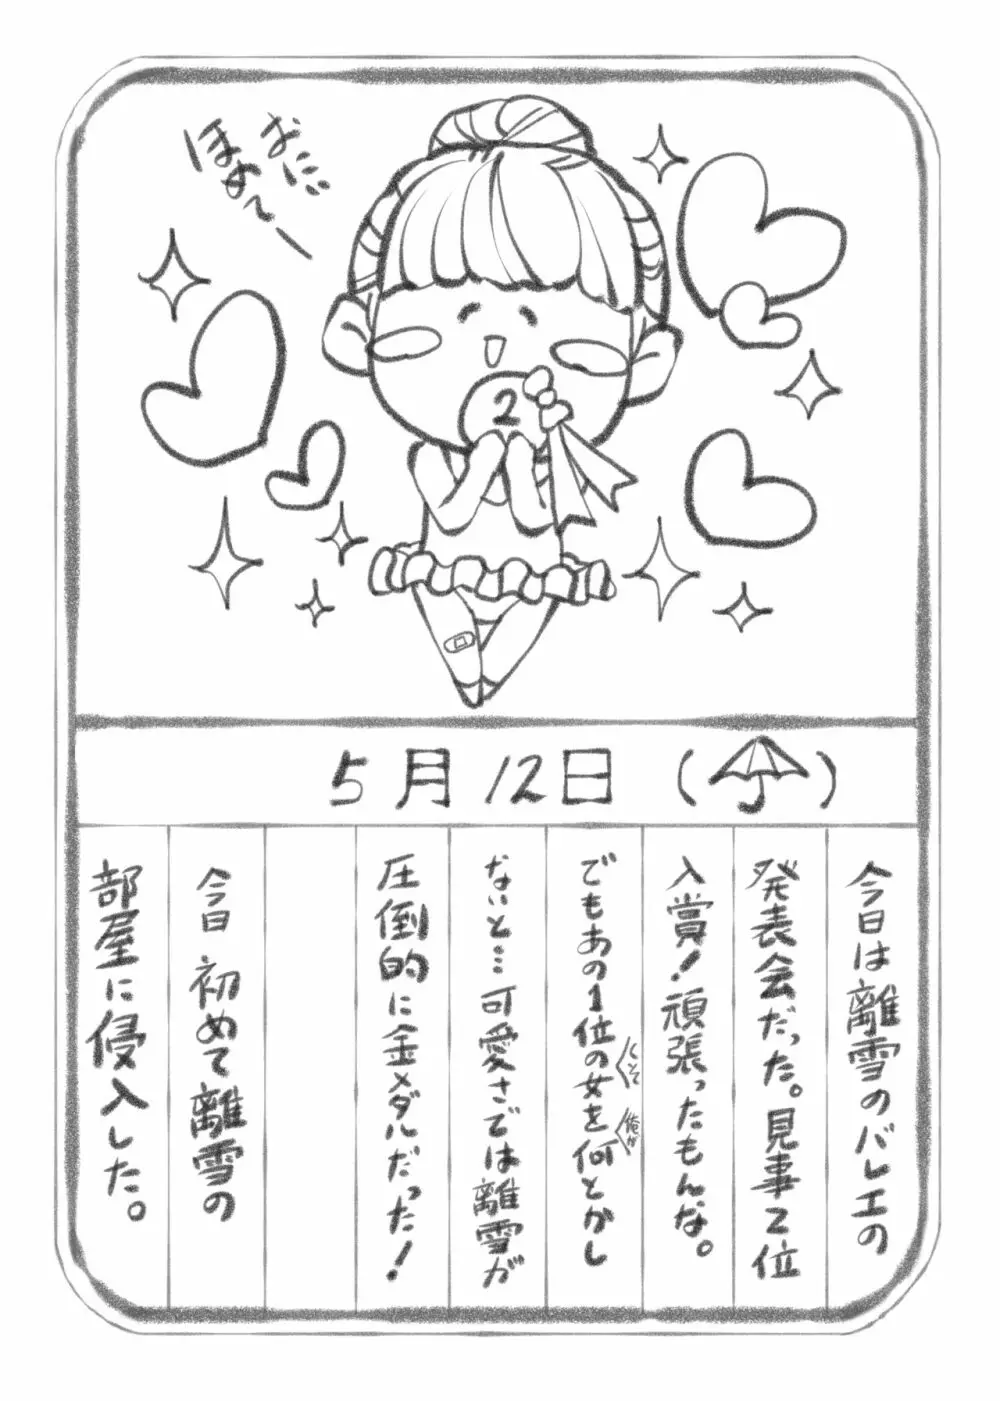 おにぃ
ほめて〜
2
5月12日（☂）
今日は離雪のバレエの
発表会だった。見事2位
入賞！頑張ったもんな。
でもあの1位の女を何とかし
俺が
ないと…可愛さでは離雪が
圧倒的に金メダルだった！
今日 初めて離雪の
部屋に侵入した。